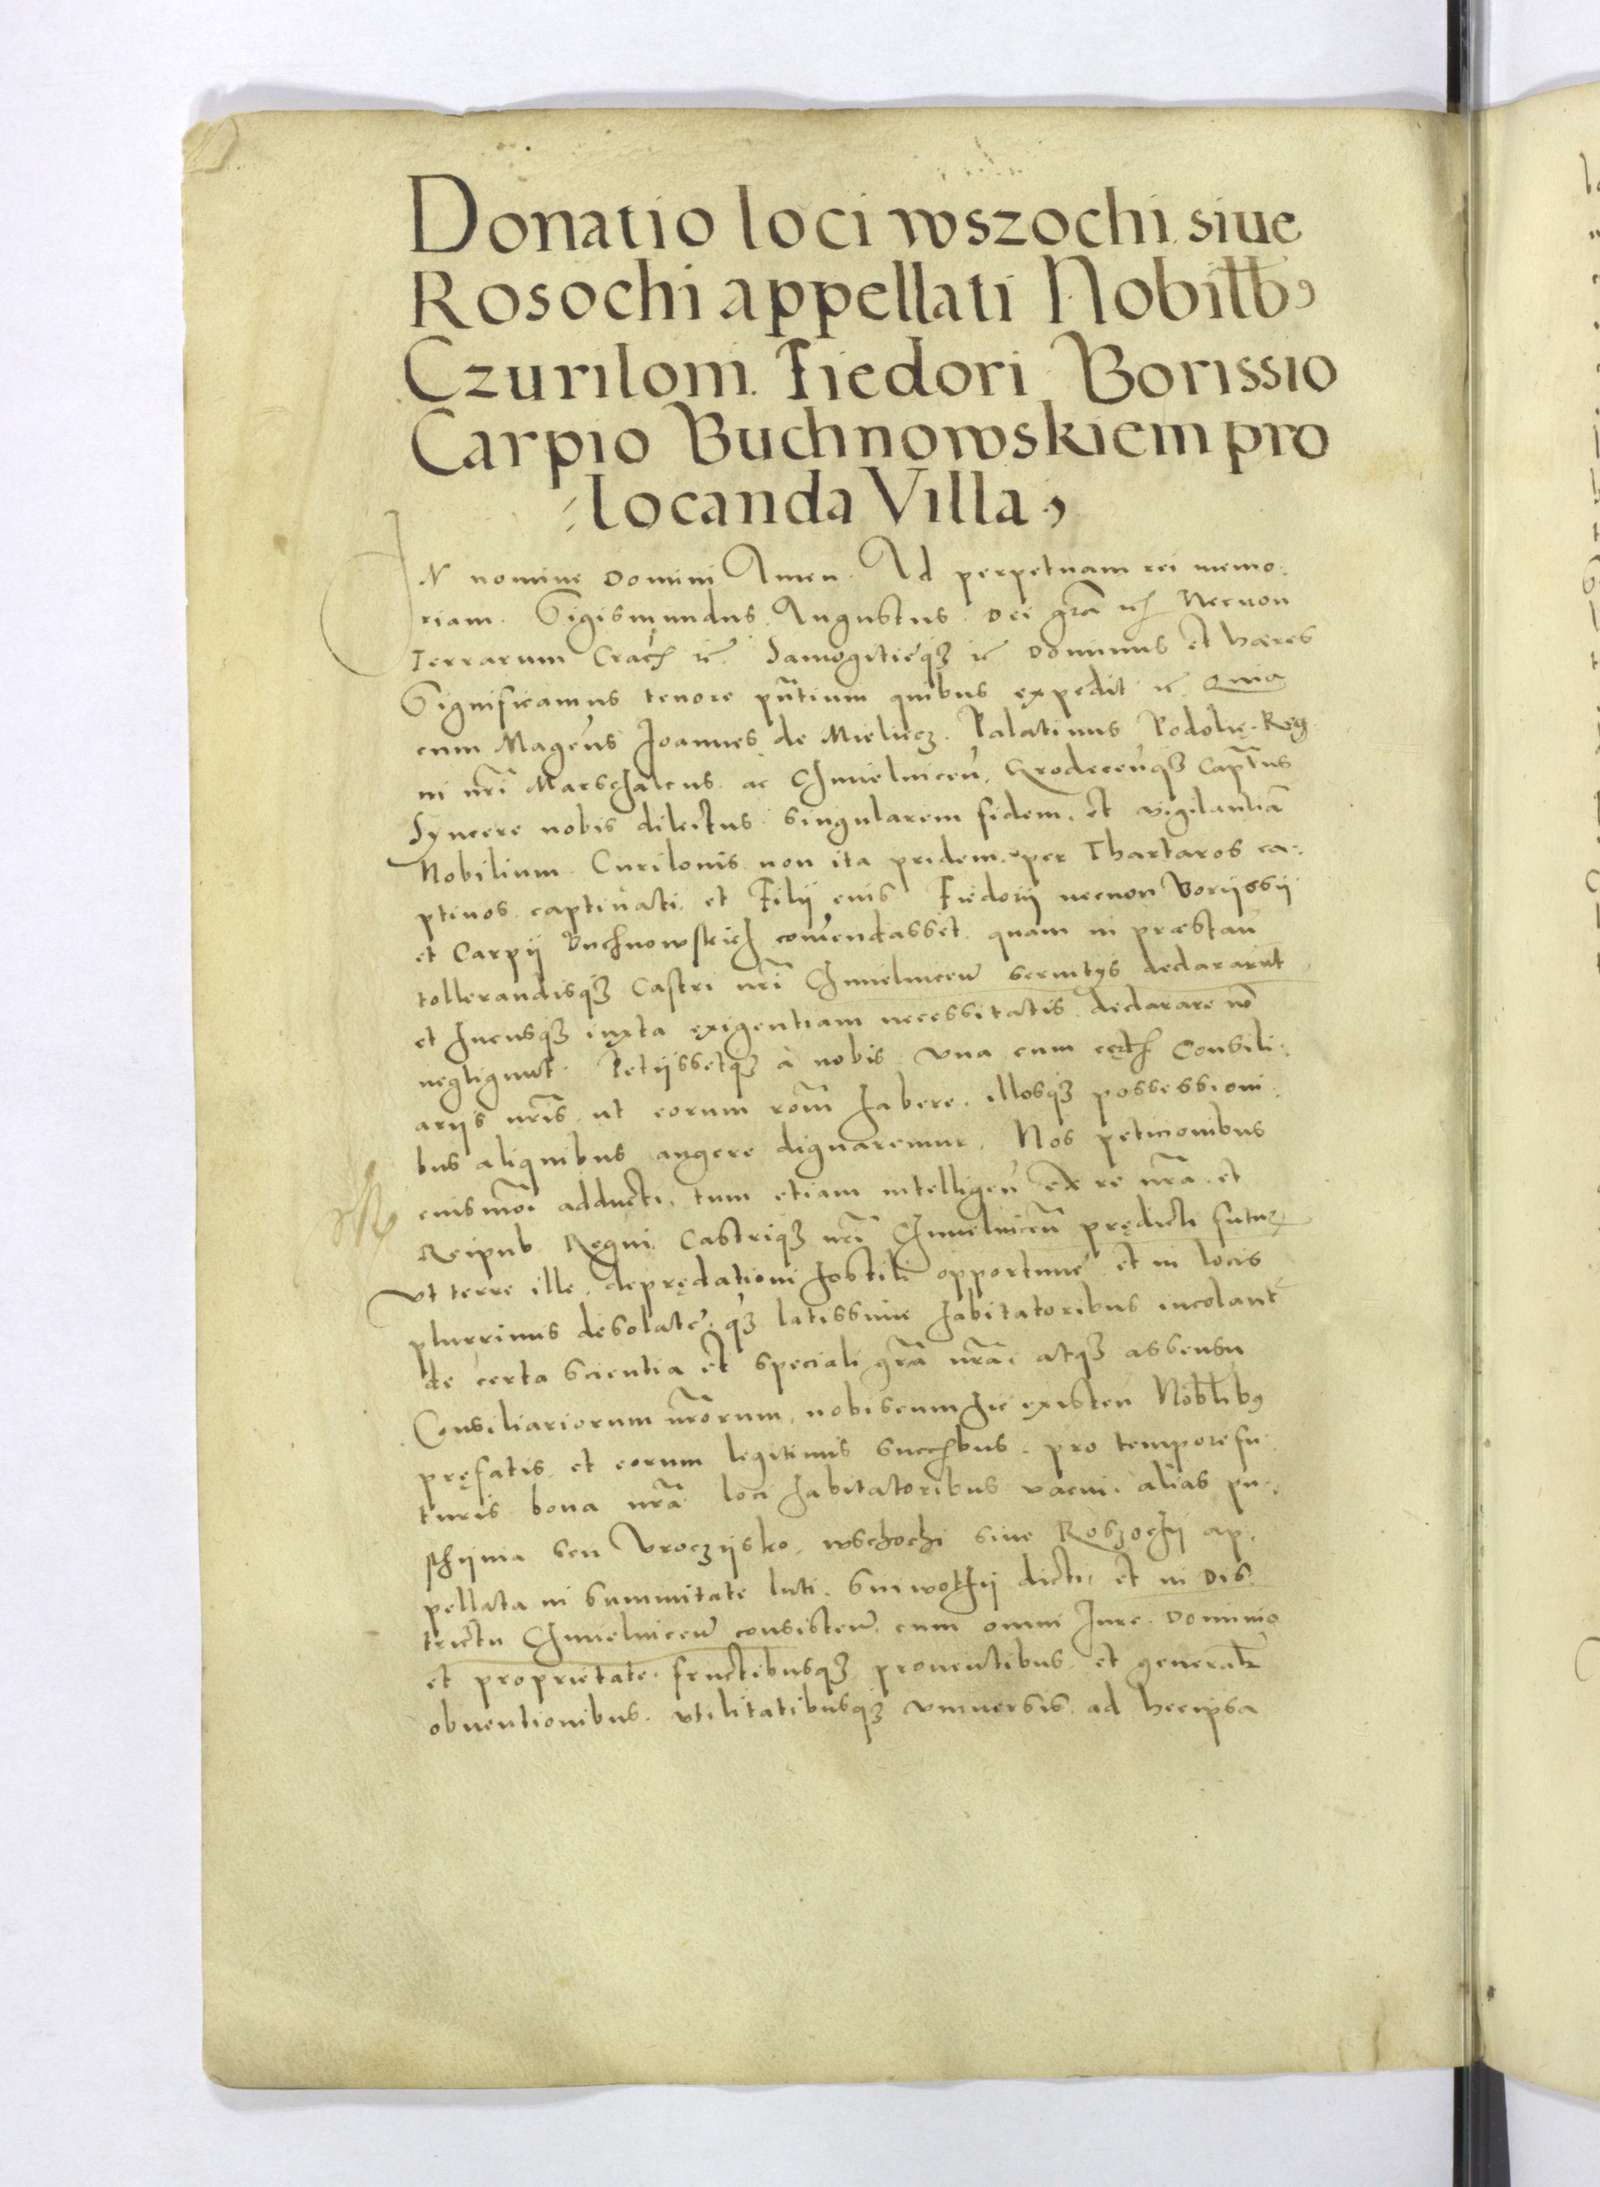 Donatio loci wszochi siue
Rosochi appellati Nobilib,
Czuriloni Fiedori Borissio
Carpio Buchnowskiem pro
locanda Villa,
IN nomine Domini Amen. Ad perpetuam rei memo:
riam. Sigismundus Augustus. Dei gra etc Necnon
Terrarum Crac etc. Samogitieq3 etc Dominus et hæres
Significamus tenore pntium quibus expedit etc. Quia
cum Magcus Joannes de Mieliecz. Palatinus Podolię. Reg
ni nri Marschalcus. ac Chmielnicen, Grodecenq3 Captnus
Syncere nobis dilectus singularem fidem, et vigilantia
Nobilium Curilonis non ita pridem per Thartaros ca:
ptiuos captiuati. et Filij eius Fiedorij necnon Borijssij
et Carpij Buchnowskich comendasset quam in præstan
tollerandisq3 Castri nri Chmielnicen seruitys declararut
et hucusq3 iuxta exigentiam necessitatis declarare no
negligunt. Petijssetq3 a nobis vna cum cęt Consili:
arijs nris ut eorum rom habere. illosq3 possessioni:
bus aliquibus augere dignaremur. Nos peticionibus
eiusmoi adducti, tum etiam intelligen ex re nra. et
Reipub Regni Castriq3 nri Chmielnicen prędicti futur
vt terre ille, depredationi hostili opportune et in locis
plurrimis desolate, q3 latissime habitatoribus incolant
de certa scientia et speciali gra nra, atq3 assensu
Consiliariorum nrorum, nobiscum hic existen Noblibus
pręfatis et eorum legitimis succbus. pro tempore fu
turis bona nra loci habitatoribus vacui, alias pu:
sthynia seu Vroczijsko. wschochi siue Roszochij ap:
pellata in summitate luti. Sniwothij dicti, et in Dis
trictu Chmielnicen consisten. cum omni Jure. Dominio
et proprietate. fructibusq3 prouentibus et generalr
obuentionibus. vtilitatibusq3 vniuersis. ad hec ipsa